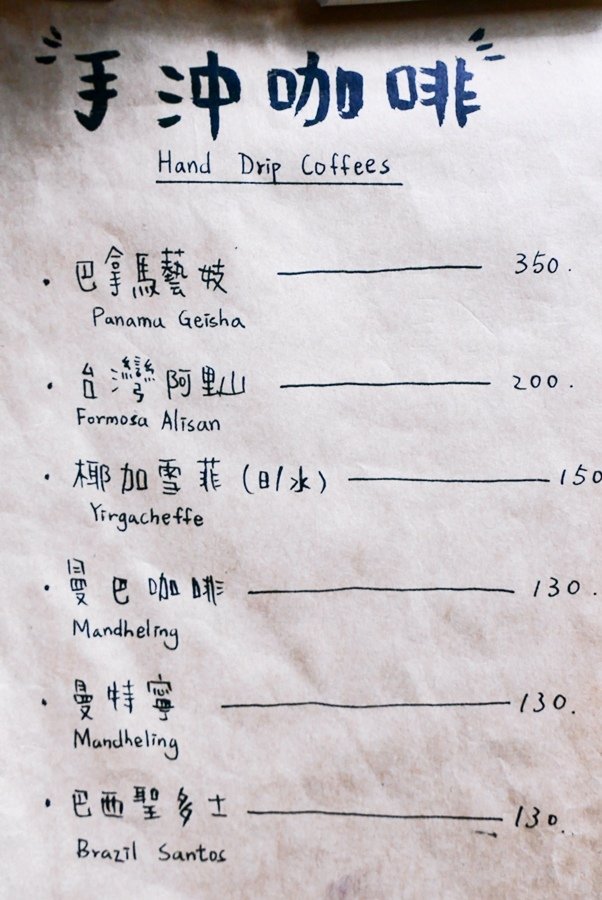 手沖咖啡
Hand Drip Coffees
巴拿馬藝妓 350.
Panama Geisha
台灣阿里山 200.
Formosa Alisan
椰加雪菲(日/水) 150
Yirgacheffe
曼巴咖啡 130.
Mandheling
曼特寧 130.
Mandheling
巴西聖多士 130.
Brazil Santos